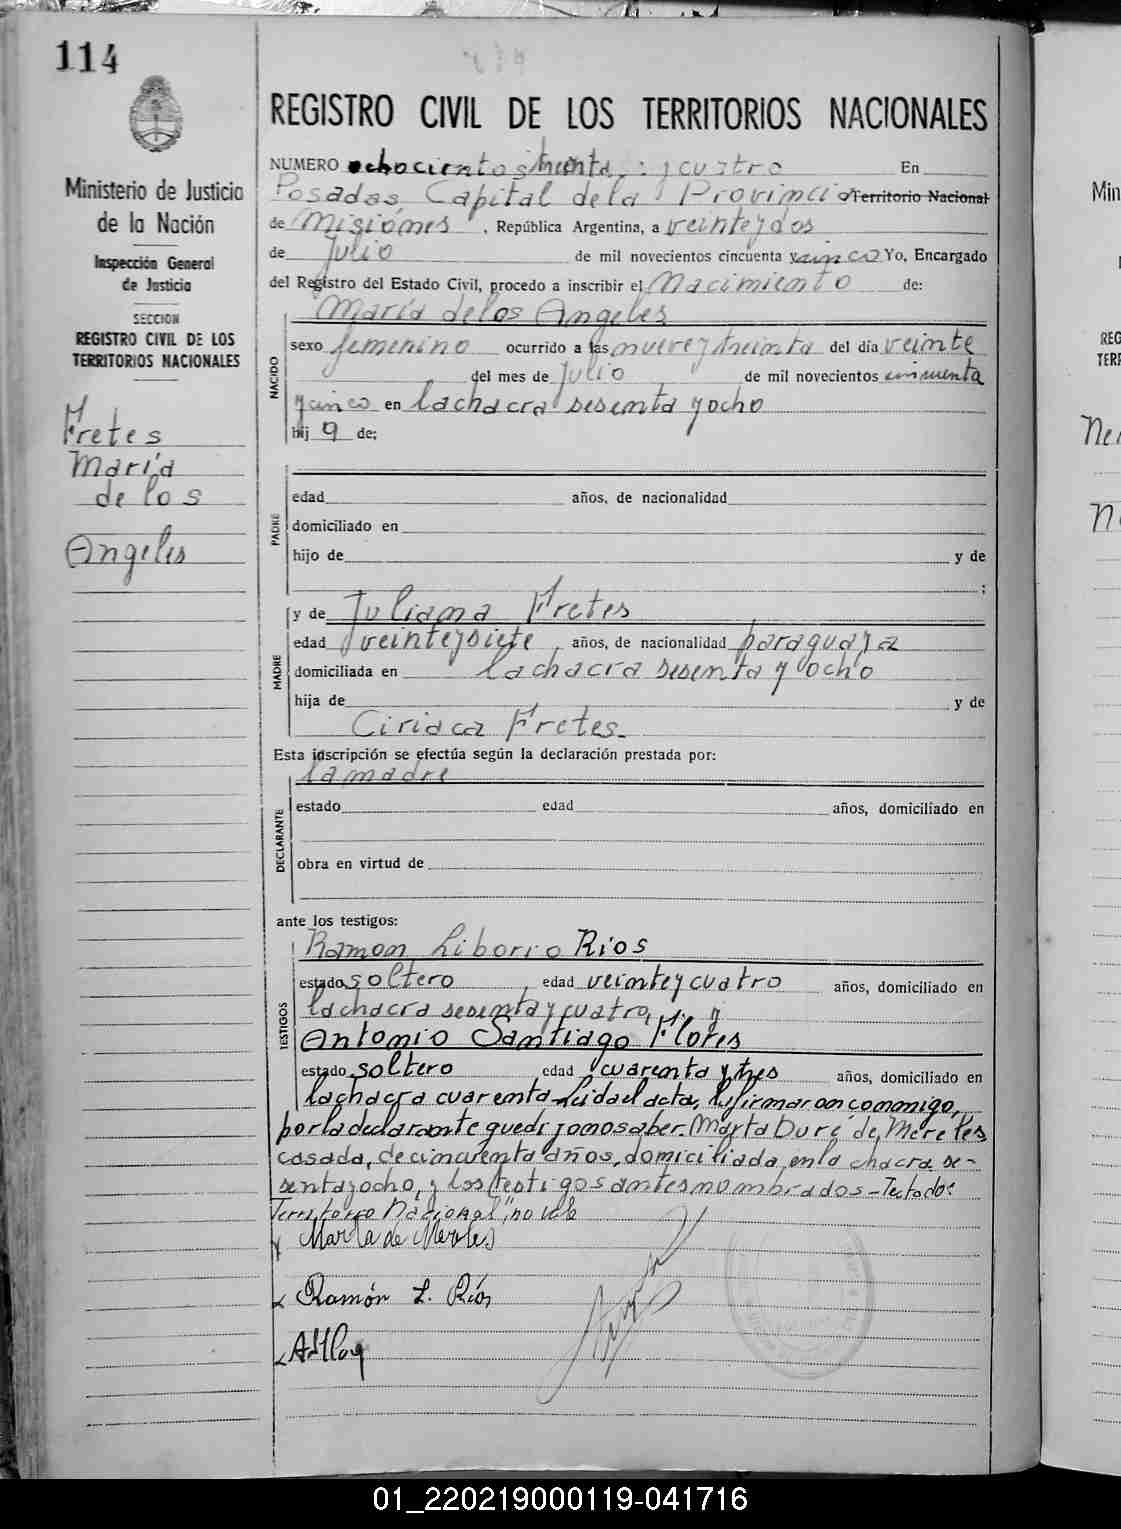 114
REGISTRO CIVIL DE LOS TERRITORIOS NACIONALES
Ministerio de Justicia
de la Nación
Inspección General
de Justicia
SECCION
REGISTRO CIVIL DE LOS
TERRITORIOS NACIONALES
Fretes
María
de los
Angeles
NUMERO ochocientos treinta y cuatro En
Posadas, Capital de la Provincia Territorio Nacional
de Misiones, República Argentina, a veinte y dos
de Julio de mil novecientos cincuenta y cinco Yo, Encargado
del Registro del Estado Civil, procedo a inscribir el Nacimiento de:
María de los Angeles
NACIDO
sexo femenino ocurrido a las nueve y treinta del día veinte
del mes de Julio de mil novecientos cincuenta
y cinco en la chacra sesenta y ocho
hij a de:
PADRE
edad años, de nacionalidad
domiciliado en
hijo de y de
;
y de Juliana Fretes
MADRE
edad veinte y siete, años, de nacionalidad paraguaya
domiciliada en la chacra sesenta y ocho
hija de y de
Ciriaca Fretes.
Esta inscripción se efectúa según la declaración prestada por:
la madre
DECLARANTE
estado edad años, domiciliado en
obra en virtud de
ante los testigos:
Ramon Liborio Rios
TESTIGOS
estado soltero, edad veinte y cuatro años, domiciliado en
la chacra sesenta y cuatro, y
Antonio Santiago Flores
estado soltero edad cuarenta y tres años, domiciliado en
la chacra cuarenta. Leida el acta, la firmaron conmigo,
por la declarante que dijo no saber. Marta Duré de Mereles
casada, de cincuenta años, domiciliada en la chacra se-
senta y ocho, y los testigos antes nombrados - Testado:
Territorio Nacional", no vale
Marta de Mereles
Ramón L. Ríos
Min
REG
TERR
01_220219000119-041716